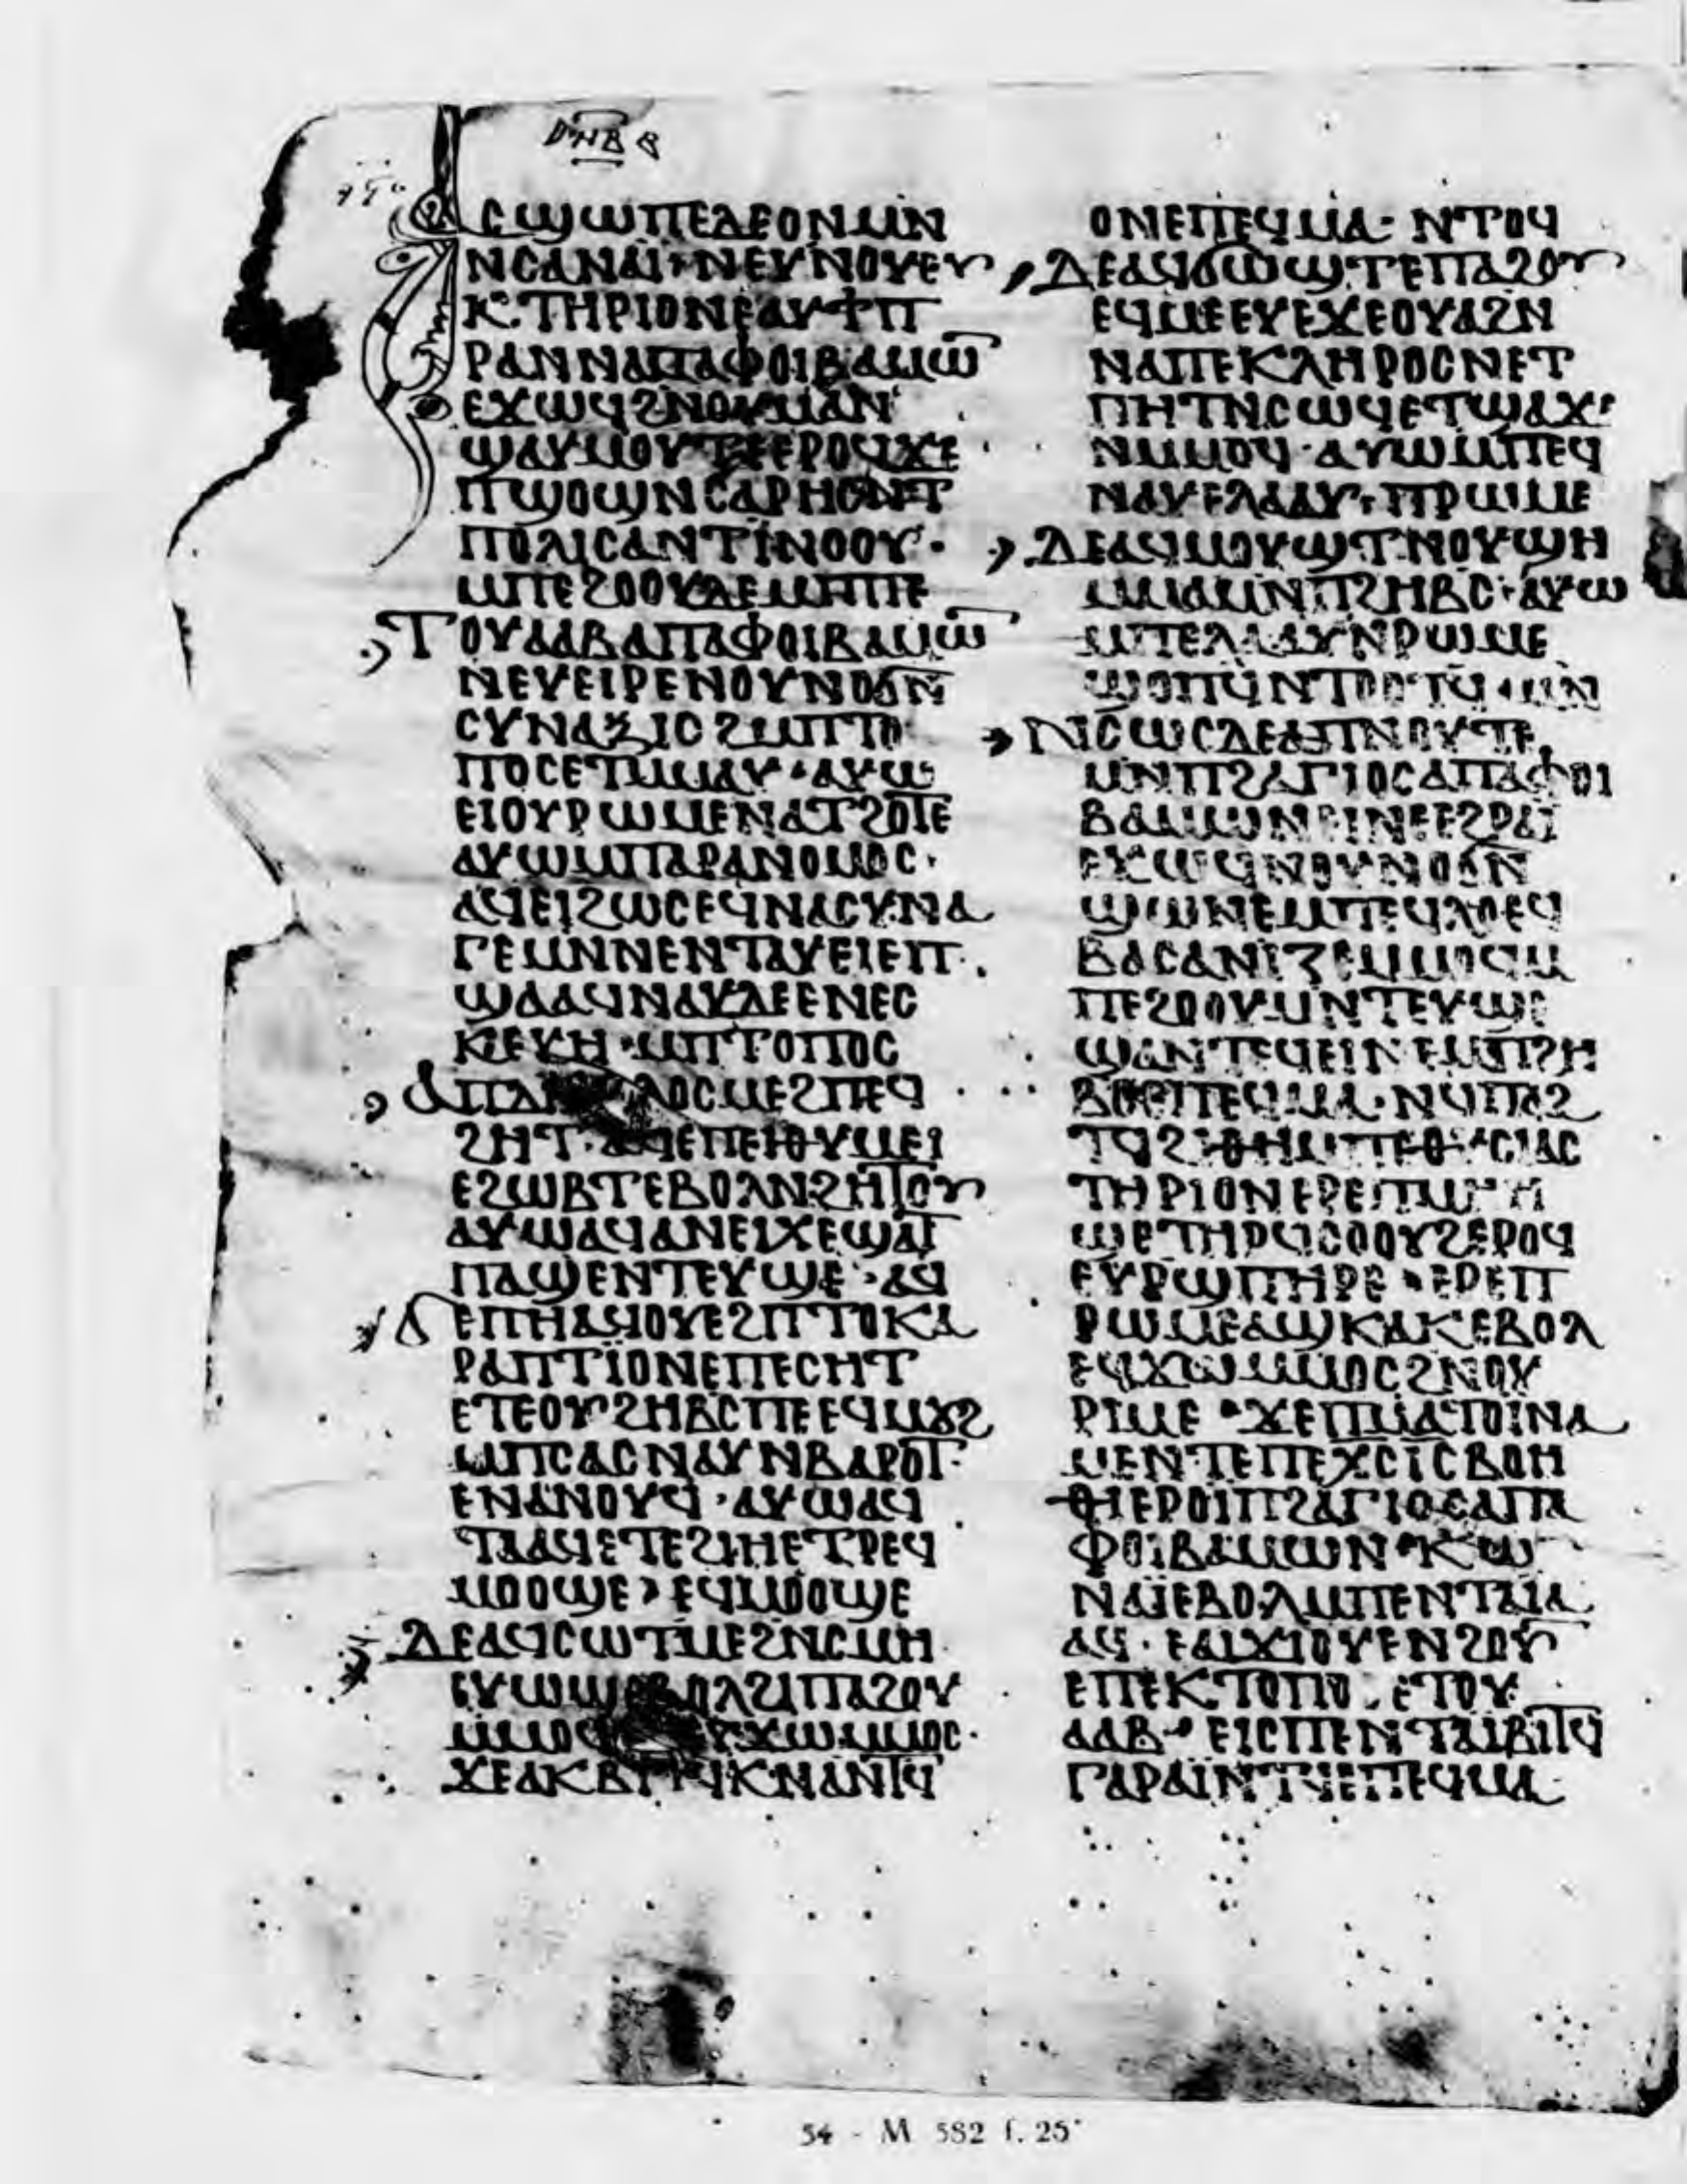 ⲁⲥϣⲱⲡⲉⲇⲉⲟⲛⲙⲛ
ⲛⲥⲁⲛⲁⲓ· ⲛⲉⲩⲛⲟⲩⲉⲩ
ⲕ̅ⲧⲏⲣⲓⲟⲛⲉⲁⲩϯⲡ
ⲣⲁⲛⲛⲁⲡⲁⲫⲟⲓⲃⲁⲙⲱ̅
ⲉϫⲱϥϩⲛⲟⲩⲙⲁⲛ
ϣⲁⲩⲙⲟⲩⲧⲉⲉⲣⲟϥϫⲉ
ⲡϣⲟϣⲛⲥⲁⲣⲏⲥⲛⲧ
ⲡⲟⲗⲓⲥⲁⲛⲧⲓⲛⲟⲟⲩ·
ⲙⲡⲉϩⲟⲟⲩⲇⲉⲙⲡⲡⲉ
ⲧⲟⲩⲁⲁⲃⲁⲡⲁⲫⲟⲓⲃⲁⲙⲱ̅
ⲛⲉⲩⲉⲓⲣⲉⲛⲟⲩⲛⲟϭⲛ̅
ⲥⲩⲛⲁⲝⲓⲥϩⲙⲡⲧⲟ
ⲡⲟⲥⲉⲧⲙⲙⲁⲩ· ⲁⲩⲱ
ⲉⲓⲟⲩⲣⲱⲙⲉⲛⲁⲧϩⲟⲧⲉ
ⲁⲩⲱⲙⲡⲁⲣⲁⲛⲟⲙⲟⲥ·
ⲁϥⲉⲓϩⲱⲥⲉϥⲛⲁⲥⲩⲛⲁ
ⲅⲉⲙⲛⲛⲉⲛⲧⲁⲩⲉⲓⲉⲡ
ϣⲁⲁϥⲛⲁⲩⲇⲉⲉⲛⲉⲥ
ⲕⲉⲩⲏ· ⲙⲡⲧⲟⲡⲟⲥ
ⲁⲡⲇⲓⲁⲃⲟⲗⲟⲥⲙⲉϩⲡⲉϥ
ϩⲏⲧ· ⲁϥⲉⲡⲉⲓⲑⲩⲙⲉⲓ
ⲉϩⲱⲃⲧⲉⲃⲟⲗⲛϩⲏⲧⲟⲩ
ⲁⲩⲱⲁϥⲁⲛⲉⲓⲭⲉϣⲁⲧ
ⲡⲁϣⲉⲛⲧⲉⲩϣⲉ· ⲁϥ
ϭⲉⲡⲏⲁϥⲟⲩⲉϩⲡⲧⲟⲕⲁ
ⲣⲁⲡⲧⲓⲟⲛⲉⲡⲉⲥⲏⲧ
ⲉⲧⲉⲟⲩϩⲏⲃⲥⲡⲉⲉϥⲙⲟⲩϩ
ⲙⲡⲥⲁⲥⲛⲁⲩⲛⲃⲁⲣⲟⲧ·
ⲉⲛⲁⲛⲟⲩϥ· ⲁⲩⲱⲁϥ
ⲧⲁⲁϥⲉⲧⲉϩⲓⲏⲉⲧⲣⲉϥ
ⲙⲟⲟϣⲉ› ⲉϥⲙⲟⲟϣⲉ
ⲇⲉⲁϥⲥⲱⲧⲙⲉϩⲛⲥⲙⲏ
ⲉⲩⲱϣⲉⲃⲟⲗϩⲓⲡⲁϩⲟⲩ
ⲙⲙⲟϥ ⲉⲩϫⲱⲙⲙⲟⲥ·
ϫⲉⲁⲕⲃⲓⲧϥⲕⲛⲁⲛⲧϥ
ⲟⲛⲉⲡⲉϥⲙⲁ· ⲛⲧⲟϥ
ⲇⲉⲁϥϭⲱϣⲧⲉⲡⲁϩⲟⲩ
ⲉϥⲙⲉⲉⲩⲉϫⲉⲟⲩⲁϩⲛ
ⲛⲁⲡⲉⲕⲗⲏⲣⲟⲥⲛⲉⲧ
ⲡⲏⲧⲛⲥⲱϥⲉⲧϣⲁϫⲉ
ⲛⲙⲙⲟϥ· ⲁⲩⲱⲙⲡⲉϥ
ⲛⲁⲩⲉⲗⲁⲁⲩ· ⲡⲣⲱⲙⲉ
ⲇⲉⲁϥⲙⲟⲩϣⲧ·ⲛⲟⲩϣⲏ
ⲙⲙⲁⲙⲛⲡϩⲏⲃⲥ· ⲁⲩⲱ
ⲙⲡⲉⲗⲁⲁⲩⲛⲣⲱⲙⲉ
ϣⲟⲡϥⲛⲧⲟⲟⲧϥ· ⲙⲛ
ⲛⲥⲱⲥⲇⲉⲁⲡⲛⲟⲩⲧⲉ
ⲙⲛⲡϩⲁⲅⲓⲟⲥⲁⲡⲁⲫⲟⲓ
ⲃⲁⲙⲱⲛⲉⲓⲛⲉⲉϩⲣⲁⲓ
ⲉϫⲱϥⲛⲟⲩⲛⲟϭⲛ̅
ϣⲱⲛⲉⲙⲡⲉϥⲗⲟⲉϥ
ⲃⲁⲥⲁⲛⲓⲍⲉⲙⲙⲟϥⲙ
ⲡⲉϩⲟⲟⲩⲙⲛⲧⲉⲩϣⲉ
ϣⲁⲛⲧⲉϥⲉⲓⲛⲉⲙⲡϩⲏ
ⲃⲥⲉⲡⲉϥⲙⲁ· ⲛϥⲡⲁϩ
ⲧϥϩⲓⲑⲏⲙⲡⲉⲑⲩⲥⲓⲁⲥ
ⲧⲏⲣⲓⲟⲛⲉⲣⲉⲡⲙⲏⲏ
ϣⲉⲧⲏⲣϥⲥⲟⲟⲩϩⲉⲣⲟϥ
ⲉⲩⲣϣⲡⲏⲣⲉ· ⲉⲣⲉⲡ
ⲣⲱⲙⲉⲁϣⲕⲁⲕⲉⲃⲟⲗ
ⲉϥϫⲱⲙⲙⲟⲥϩⲛⲟⲩ
ⲣⲓⲙⲉ· ϫⲉⲡⲙⲁⲧⲟⲓⲛⲁ
ⲙⲉⲛⲧⲉⲡⲉⲭ̅ⲥ̅ⲓ̅ⲥ̅ⲃⲟⲏ
ⲑⲓⲉⲣⲟⲓⲡϩⲁⲅⲓⲟⲥⲁⲡⲁ
ⲫⲟⲓⲃⲁⲙⲱⲛ· ⲕⲱ
ⲛⲁⲓⲉⲃⲟⲗⲙⲡⲉⲛⲧⲁⲓⲁ
ⲁϥ· ⲉⲁⲓϫⲓⲟⲩⲉⲛϩⲟⲩ
ⲉⲡⲉⲕⲧⲟⲡⲟⲥⲉⲧⲟⲩ
ⲁⲁⲃ· ⲉⲓⲥⲡⲉⲛⲧⲁⲓⲃⲓⲧϥ
ⲅⲁⲣⲁⲓⲛⲧϥⲉⲡⲉϥⲙⲁ
54 - M 582 f. 25ᵛ